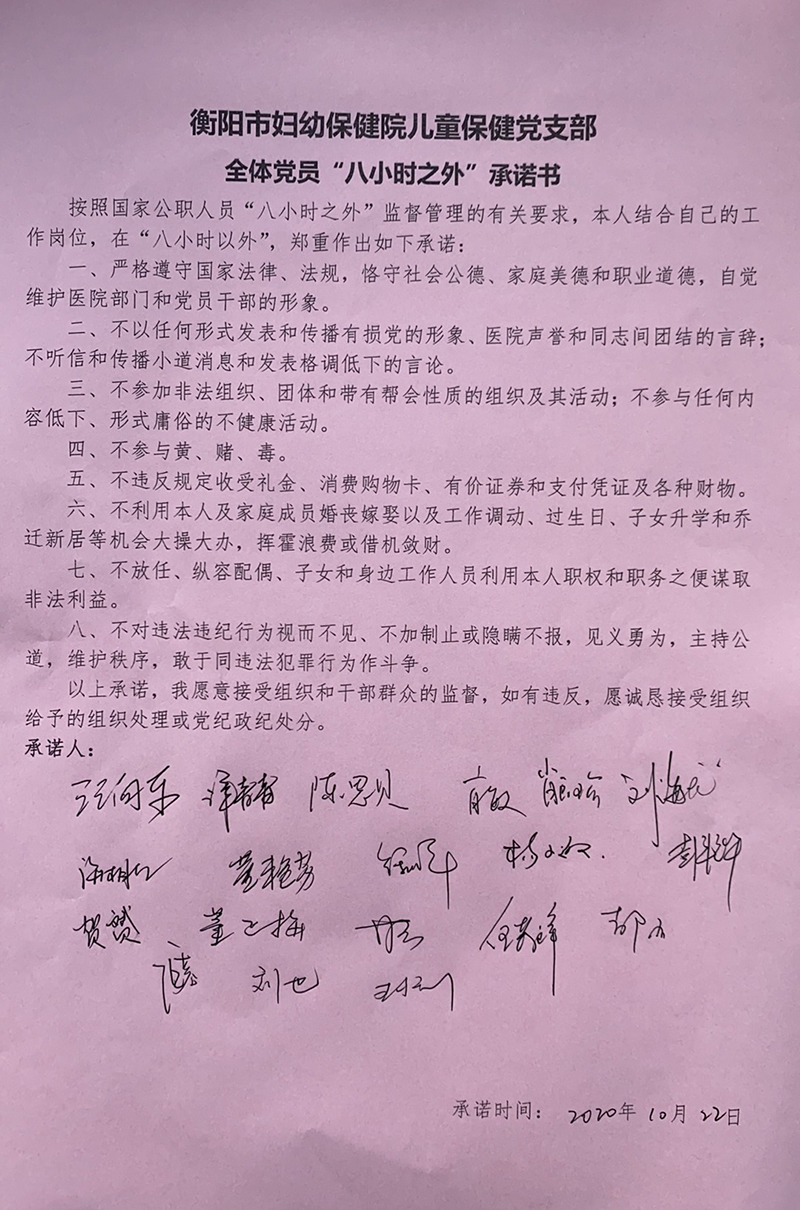 衡阳市妇幼保健院儿童保健党支部
全体党员“八小时之外”承诺书
按照国家公职人员“八小时之外”监督管理的有关要求，本人结合自己的工
作岗位，在“八小时以外”，郑重作出如下承诺：
一、严格遵守国家法律、法规，恪守社会公德、家庭美德和职业道德，自觉
维护医院部门和党员干部的形象。
二、不以任何形式发表和传播有损党的形象、医院声誉和同志间团结的言辞；
不听信和传播小道消息和发表格调低下的言论。
三、不参加非法组织、团体和带有帮会性质的组织及其活动；不参与任何内
容低下、形式庸俗的不健康活动。
四、不参与黄、赌、毒。
五、不违反规定收受礼金、消费购物卡、有价证券和支付凭证及各种财物。
六、不利用本人及家庭成员婚丧嫁娶以及工作调动、过生日、子女升学和乔
迁新居等机会大操大办，挥霍浪费或借机敛财。
七、不放任、纵容配偶、子女和身边工作人员利用本人职权和职务之便谋取
非法利益。
八、不对违法违纪行为视而不见、不加制止或隐瞒不报，见义勇为，主持公
道，维护秩序，敢于同违法犯罪行为作斗争。
以上承诺，我愿意接受组织和干部群众的监督，如有违反，愿诚恳接受组织
给予的组织处理或党纪政纪处分。
承诺人：
陈思贝
董艳芳
贺赞
刘也
承诺时间： 2020年 10月 22日